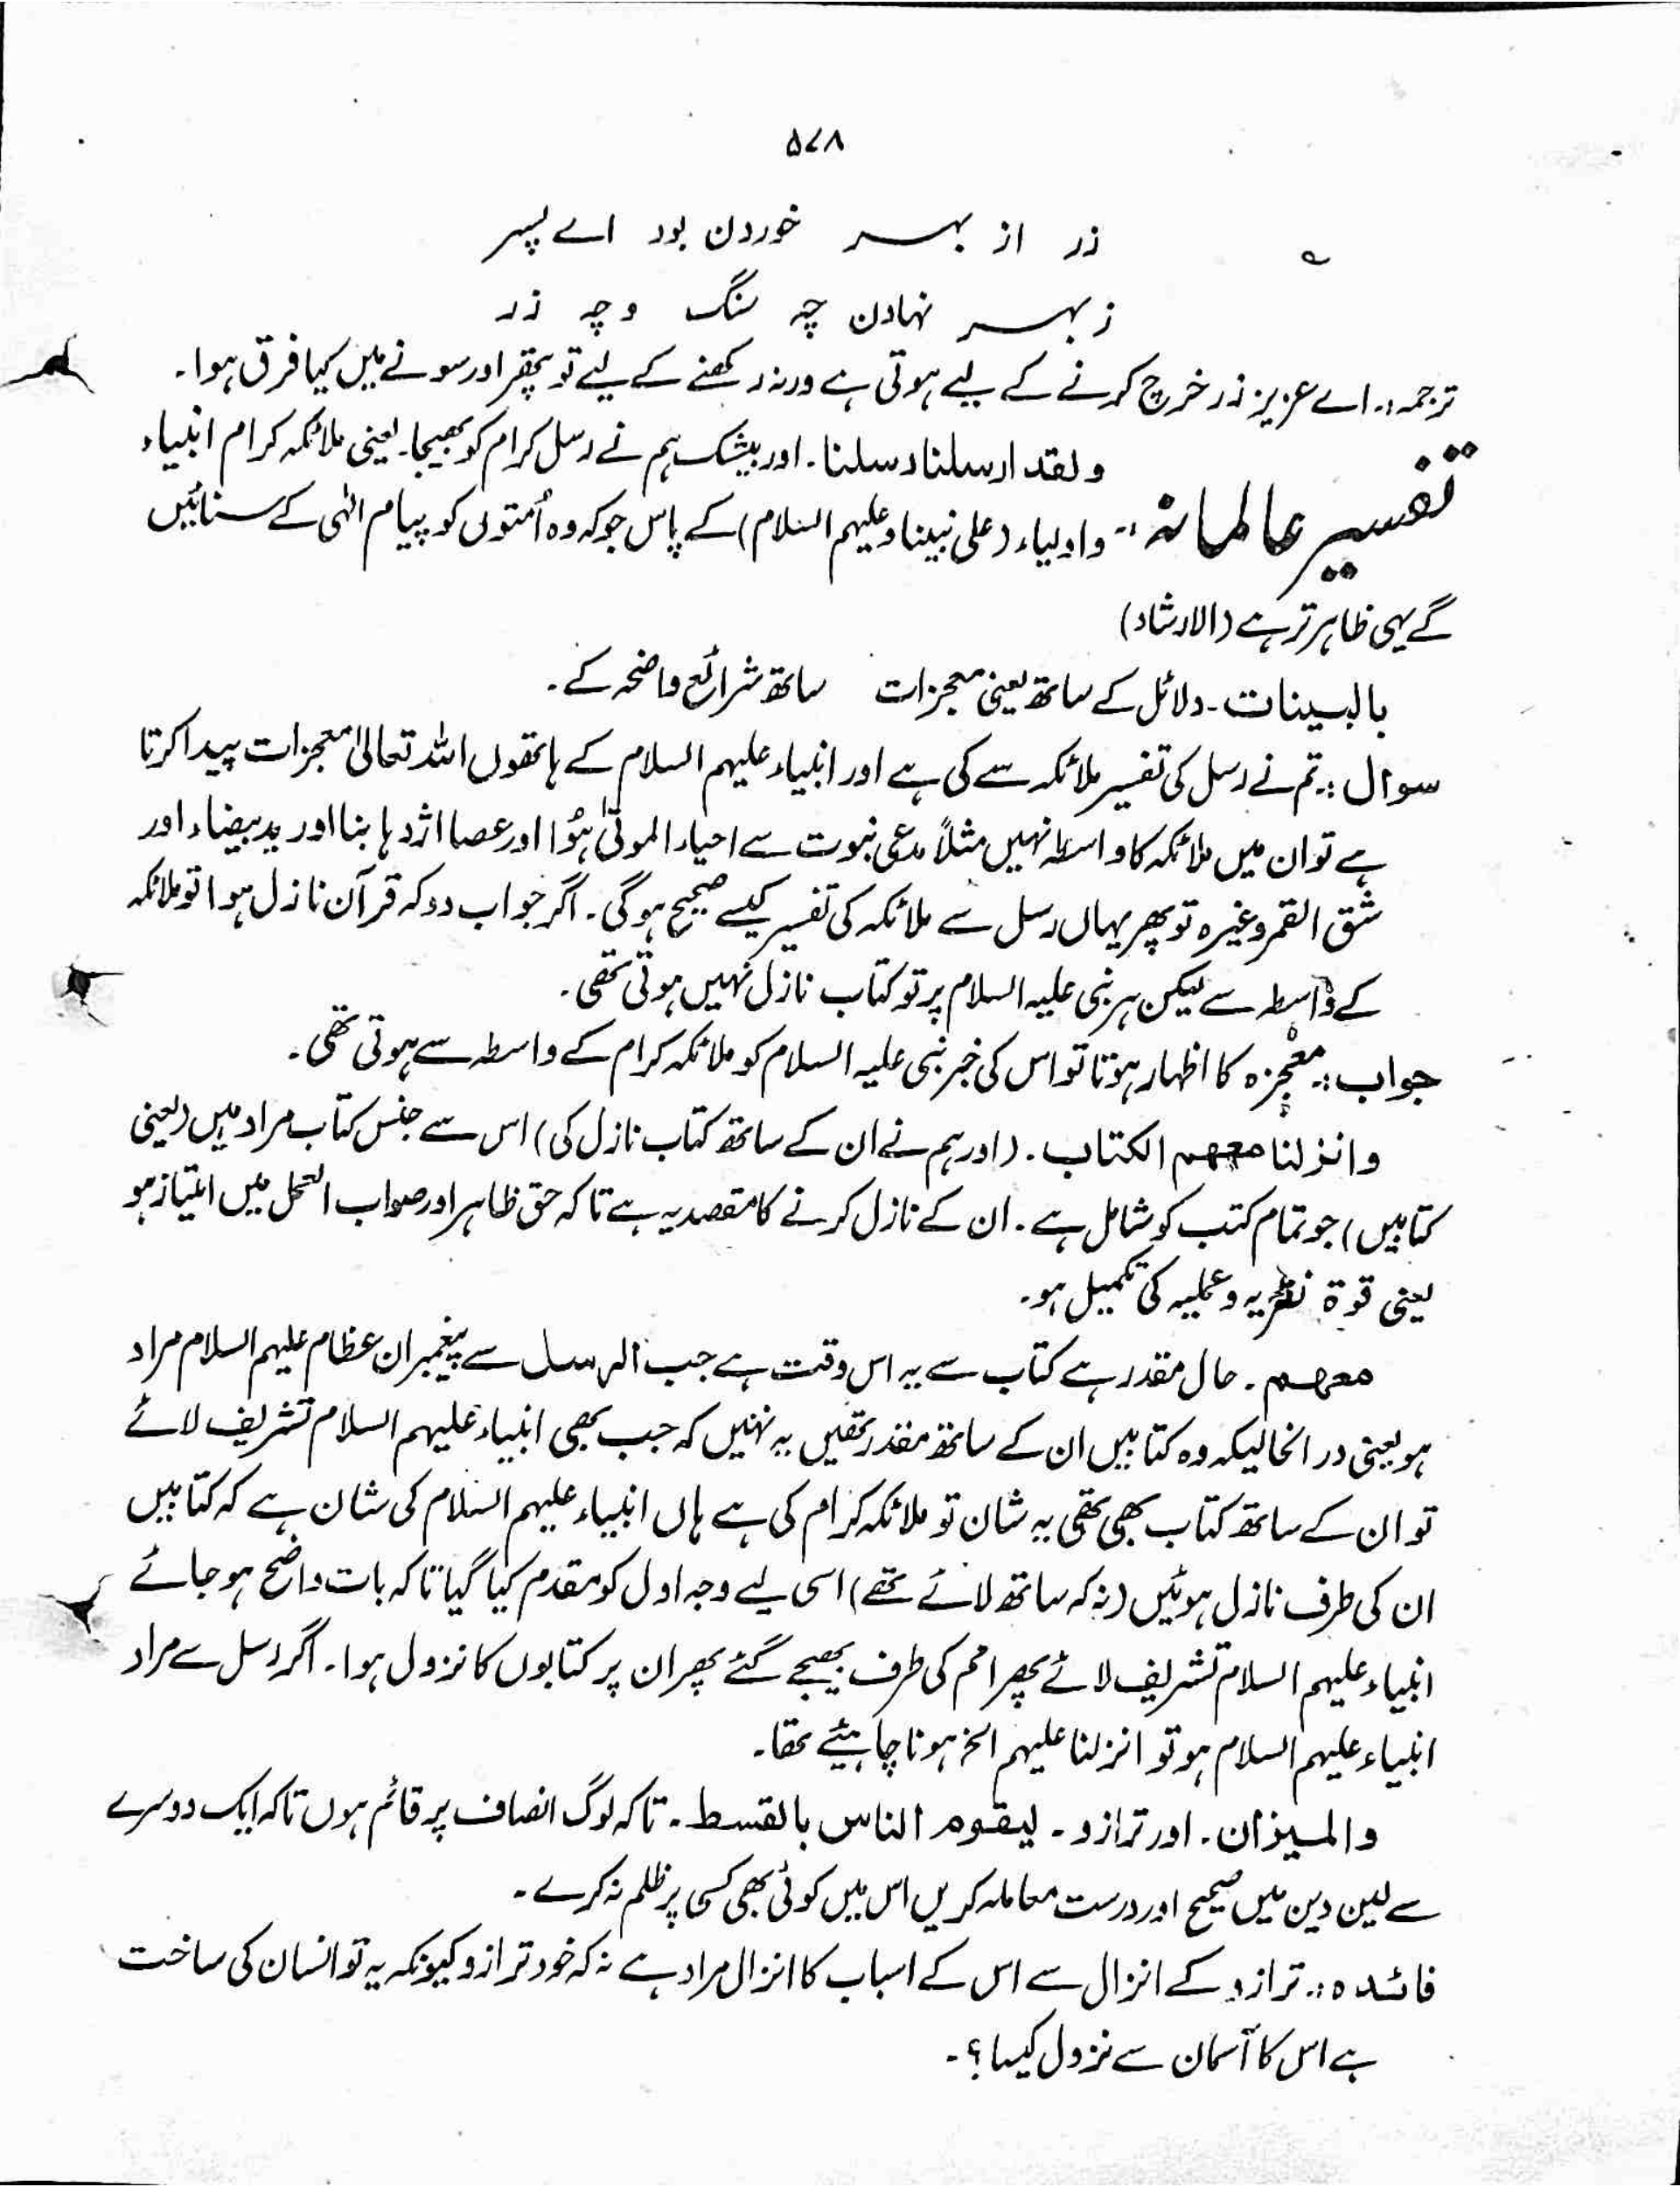 ۵۷۸
؎ زر از بہر خوردن بود اے پسر
ز بہر نہادن چہ سنگ و چہ زر
ترجمہ:۔ اے عزیز زر خرچ کرنے کے لیے ہوتی ہے ورنہ رکھنے کے لیے تو پتھر اور سونے میں کیا فرق ہوا۔
ولقد ارسلنا رسلنا۔ اور بیشک ہم نے رسل کرام کو بھیجا۔ یعنی ملائکہ کرام انبیاء
تفسیر عالمانہ:۔ و اولیاء (علی نبینا و علیہم السلام) کے پاس جو کہ وہ اُمتوں کو پیام الٰہی کے سنائیں
گے یہی ظاہر تر ہے (الارشاد)
بالبینات۔ دلائل کے ساتھ یعنی معجزات ساتھ شرائع واضحہ کے۔
سوال:۔ تم نے رسل کی تفسیر ملائکہ سے کی ہے اور انبیاء علیہم السلام کے ہاتھوں اللہ تعالیٰ معجزات پیدا کرتا
ہے تو ان میں ملائکہ کا واسطہ نہیں مثلاً مدعی نبوت سے احیاء الموتیٰ ہُوا اور عصا اژدہا بنا اور ید بیضاء اور
شق القمر وغیرہ تو پھر یہاں رسل سے ملائکہ کی تفسیر کیسے صحیح ہوگی۔ اگر جواب دو کہ قرآن نازل ہوا تو ملائکہ
کے واسطہ سے لیکن ہر نبی علیہ السلام پر تو کتاب نازل نہیں ہوتی تھی۔
جواب:۔ معجزہ کا اظہار ہوتا تو اس کی خبر نبی علیہ السلام کو ملائکہ کرام کے واسطہ سے ہوتی تھی۔
وانزلنا معھم الکتاب۔ (اور ہم نے ان کے ساتھ کتاب نازل کی) اس سے جنس کتاب مراد ہیں (یعنی
کتابیں) جو تمام کتب کو شامل ہے۔ ان کے نازل کرنے کا مقصد یہ ہے تاکہ حق ظاہر اور صواب العمل میں امتیاز ہو
یعنی قوۃ نظریہ و عملیہ کی تکمیل ہو۔
معھم۔ حال مقدر ہے کتاب سے یہ اس وقت ہے جب الرسل سے پیغمبران عظام علیہم السلام مراد
ہو یعنی در انحالیکہ وہ کتابیں ان کے ساتھ مقدر تھیں یہ نہیں کہ جب بھی انبیاء علیہم السلام تشریف لائے
تو ان کے ساتھ کتاب بھی تھی یہ شان تو ملائکہ کرام کی ہے ہاں انبیاء علیہم السلام کی شان ہے کہ کتابیں
ان کی طرف نازل ہوئیں (نہ کہ ساتھ لائے تھے) اسی لیے وجہ اول کو مقدم کیا گیا تاکہ بات واضح ہو جائے
انبیاء علیہم السلام تشریف لائے پھر امم کی طرف بھیجے گئے پھر ان پر کتابوں کا نزول ہوا۔ اگر رسل سے مراد
انبیاء علیہم السلام ہو تو انزلنا علیہم الخ ہونا چاہیئے تھا۔
والمیزان۔ اور ترازو۔ لیقوم الناس بالقسط۔ تاکہ لوگ انصاف پر قائم ہوں تاکہ ایک دوسرے
سے لین دین میں صحیح اور درست معاملہ کریں اس میں کوئی بھی کسی پر ظلم نہ کرے۔
فائدہ:۔ ترازو کے انزال سے اس کے اسباب کا انزال مراد ہے نہ کہ خود ترازو کیونکہ یہ تو انسان کی ساخت
ہے اس کا آسمان سے نزول کیسا؟۔